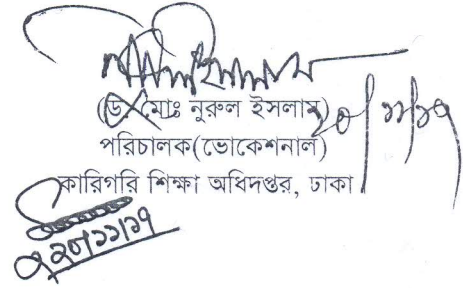 (ডঃ মোঃ নুরুল ইসলাম)
২০/১১/১৭
পরিচালক(ভোকেশনাল)
কারিগরি শিক্ষা অধিদপ্তর, ঢাকা
২০/১১/১৭